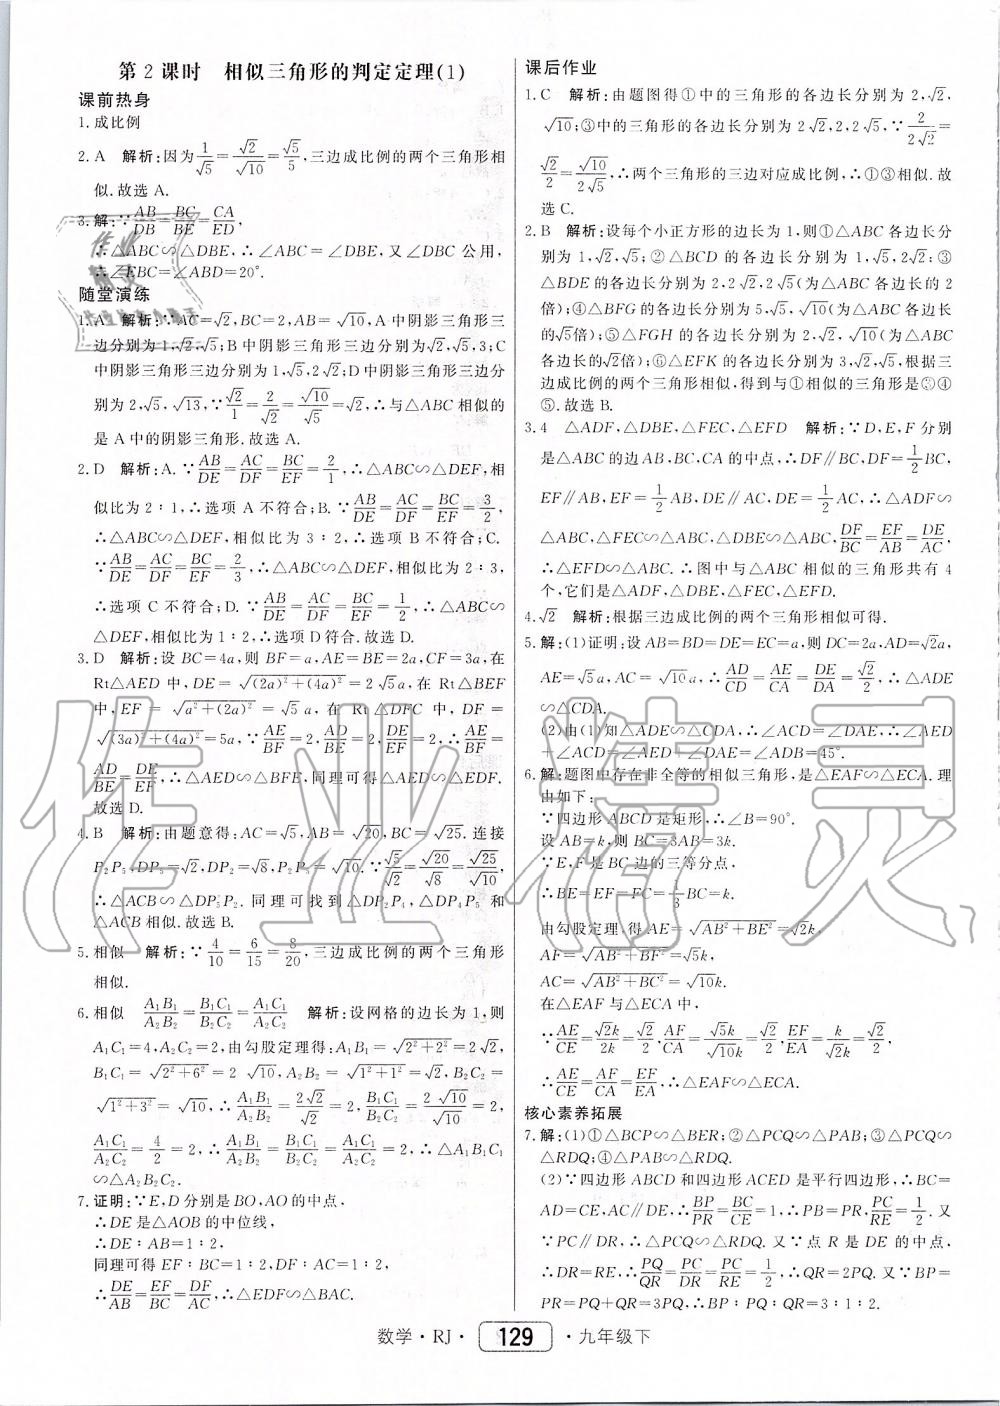 第2课时　相似三角形的判定定理(1)
课前热身
1.成比例
2.A　解析:因为1/√5=√2/√10=√5/5,三边成比例的两个三角形相
似.故选A.
3.解:∵AB/DB=BC/BE=CA/ED,
∴△ABC∽△DBE,∴∠ABC=∠DBE,又∠DBC公用,
∴∠EBC=∠ABD=20°.
随堂演练
1.A　解析:∵AC=√2,BC=2,AB=√10,A中阴影三角形三
边分别为1,√2,√5;B中阴影三角形三边分别为√2,√5,3;C
中阴影三角形三边分别为1,√5,2√2;D中阴影三角形三边分
别为2,√5,√13,∵√2/1=2/√2=√10/√5=√2,∴与△ABC相似的
是A中的阴影三角形.故选A.
2.D　解析:A.∵AB/DE=AC/DF=BC/EF=2/1,∴△ABC∽△DEF,相
似比为2∶1,∴选项A不符合;B.∵AB/DE=AC/DF=BC/EF=3/2,
∴△ABC∽△DEF,相似比为3∶2,∴选项B不符合;C.
∵AB/DE=AC/DF=BC/EF=2/3,∴△ABC∽△DEF,相似比为2∶3,
∴选项C不符合;D.∵AB/DE=AC/DF=BC/EF=1/2,∴△ABC∽
△DEF,相似比为1∶2,∴选项D符合.故选D.
3.D　解析:设BC=4a,则BF=a,AE=BE=2a,CF=3a,在
Rt△AED中,DE=√((2a)²+(4a)²)=2√5a,在Rt△BEF
中,EF=√(a²+(2a)²)=√5a,在Rt△DFC中,DF=
√((3a)²+(4a)²)=5a,∵AE/BF=2,AD/BE=2,DE/EF=2,∴AE/BF=
AD/BE=DE/EF,∴△AED∽△BFE,同理可得△AED∽△EDF.
故选D.
4.B　解析:由题意得:AC=√5,AB=√20,BC=√25.连接
P₂P₅,DP₅=√2,DP₂=√8,P₂P₅=√10.∵√5/√2=√20/√8=√25/√10,
∴△ACB∽△DP₅P₂.同理可找到△DP₂P₄,△DP₄P₅和
△ACB相似.故选B.
5.相似　解析:∵4/10=6/15=8/20,三边成比例的两个三角形
相似.
6.相似　A₁B₁/A₂B₂=B₁C₁/B₂C₂=A₁C₁/A₂C₂　解析:设网格的边长为1,则
A₁C₁=4,A₂C₂=2,由勾股定理得:A₁B₁=√(2²+2²)=2√2,
B₁C₁=√(2²+6²)=2√10,A₂B₂=√(1²+1²)=√2,B₂C₂=
√(1²+3²)=√10,∴A₁B₁/A₂B₂=2√2/√2=2,B₁C₁/B₂C₂=2√10/√10=2,
A₁C₁/A₂C₂=4/2=2,∴A₁B₁/A₂B₂=B₁C₁/B₂C₂=A₁C₁/A₂C₂=2,∴△A₁B₁C₁
∽△A₂B₂C₂.
7.证明:∵E,D分别是BO,AO的中点,
∴DE是△AOB的中位线,
∴DE∶AB=1∶2,
同理可得EF∶BC=1∶2,DF∶AC=1∶2,
∴DE/AB=EF/BC=DF/AC,∴△EDF∽△BAC.
课后作业
1.C　解析:由题图得①中的三角形的各边长分别为2,√2,
√10;③中的三角形的各边长分别为2√2,2,2√5,∵2/2√2=
√2/2=√10/2√5,∴两个三角形的三边对应成比例,∴①③相似.故
选C.
2.B　解析:设每个小正方形的边长为1,则①△ABC各边长分
别为1,√2,√5;②△BCD的各边长分别为1,√5,2√2;③
△BDE的各边长分别为2,2√2,2√5(为△ABC各边长的2
倍);④△BFG的各边长分别为5,√5,√10(为△ABC各边
长的√5倍);⑤△FGH的各边长分别为2,√2,√10(为△ABC
各边长的√2倍);⑥△EFK的各边长分别为3,√2,√5,根据三
边成比例的两个三角形相似,得到与①相似的三角形是③④
⑤.故选B.
3.4　△ADF,△DBE,△FEC,△EFD　解析:∵D,E,F分别
是△ABC的边AB,BC,CA的中点,∴DF∥BC,DF=1/2BC,
EF∥AB,EF=1/2AB,DE∥AC,DE=1/2AC,∴△ADF∽
△ABC,△FEC∽△ABC,△DBE∽△ABC,DF/BC=EF/AB=DE/AC,
∴△EFD∽△ABC.∴图中与△ABC相似的三角形共有4
个,它们是△ADF,△DBE,△FEC,△EFD.
4.√2　解析:根据三边成比例的两个三角形相似可得.
5.解:(1)证明:设AB=BD=DE=EC=a,则DC=2a,AD=√2a,
AE=√5a,AC=√10a,∴AD/CD=AE/CA=DE/DA=√2/2,∴△ADE
∽△CDA.
(2)由(1)知△ADE∽△CDA,∴∠ACD=∠DAE,∴∠AED
+∠ACD=∠AED+∠DAE=∠ADB=45°.
6.解:题图中存在非全等的相似三角形,是△EAF∽△ECA.理
由如下:
∵四边形ABCD是矩形,∴∠B=90°.
设AB=k,则BC=3AB=3k.
∵E,F是BC边的三等分点,
∴BE=EF=FC=1/3BC=k.
由勾股定理,得AE=√(AB²+BE²)=√2k,
AF=√(AB²+BF²)=√5k,
AC=√(AB²+BC²)=√10k.
在△EAF与△ECA中,
∵AE/CE=√2k/2k=√2/2,AF/CA=√5k/√10k=√2/2,EF/EA=k/√2k=√2/2,
∴AE/CE=AF/CA=EF/EA,∴△EAF∽△ECA.
核心素养拓展
7.解:(1)①△BCP∽△BER;②△PCQ∽△PAB;③△PCQ∽
△RDQ;④△PAB∽△RDQ.
(2)∵四边形ABCD和四边形ACED是平行四边形,∴BC=
AD=CE,AC∥DE,∴BP/PR=BC/CE=1,∴PB=PR,PC/RE=1/2.又
∵PC∥DR,∴△PCQ∽△RDQ.又∵点R是DE的中点,
∴DR=RE,∴PQ/QR=PC/DR=PC/RE=1/2,∴QR=2PQ.又∵BP
=PR=PQ+QR=3PQ,∴BP∶PQ∶QR=3∶1∶2.
数学·RJ·　129　·九年级下
作业精灵